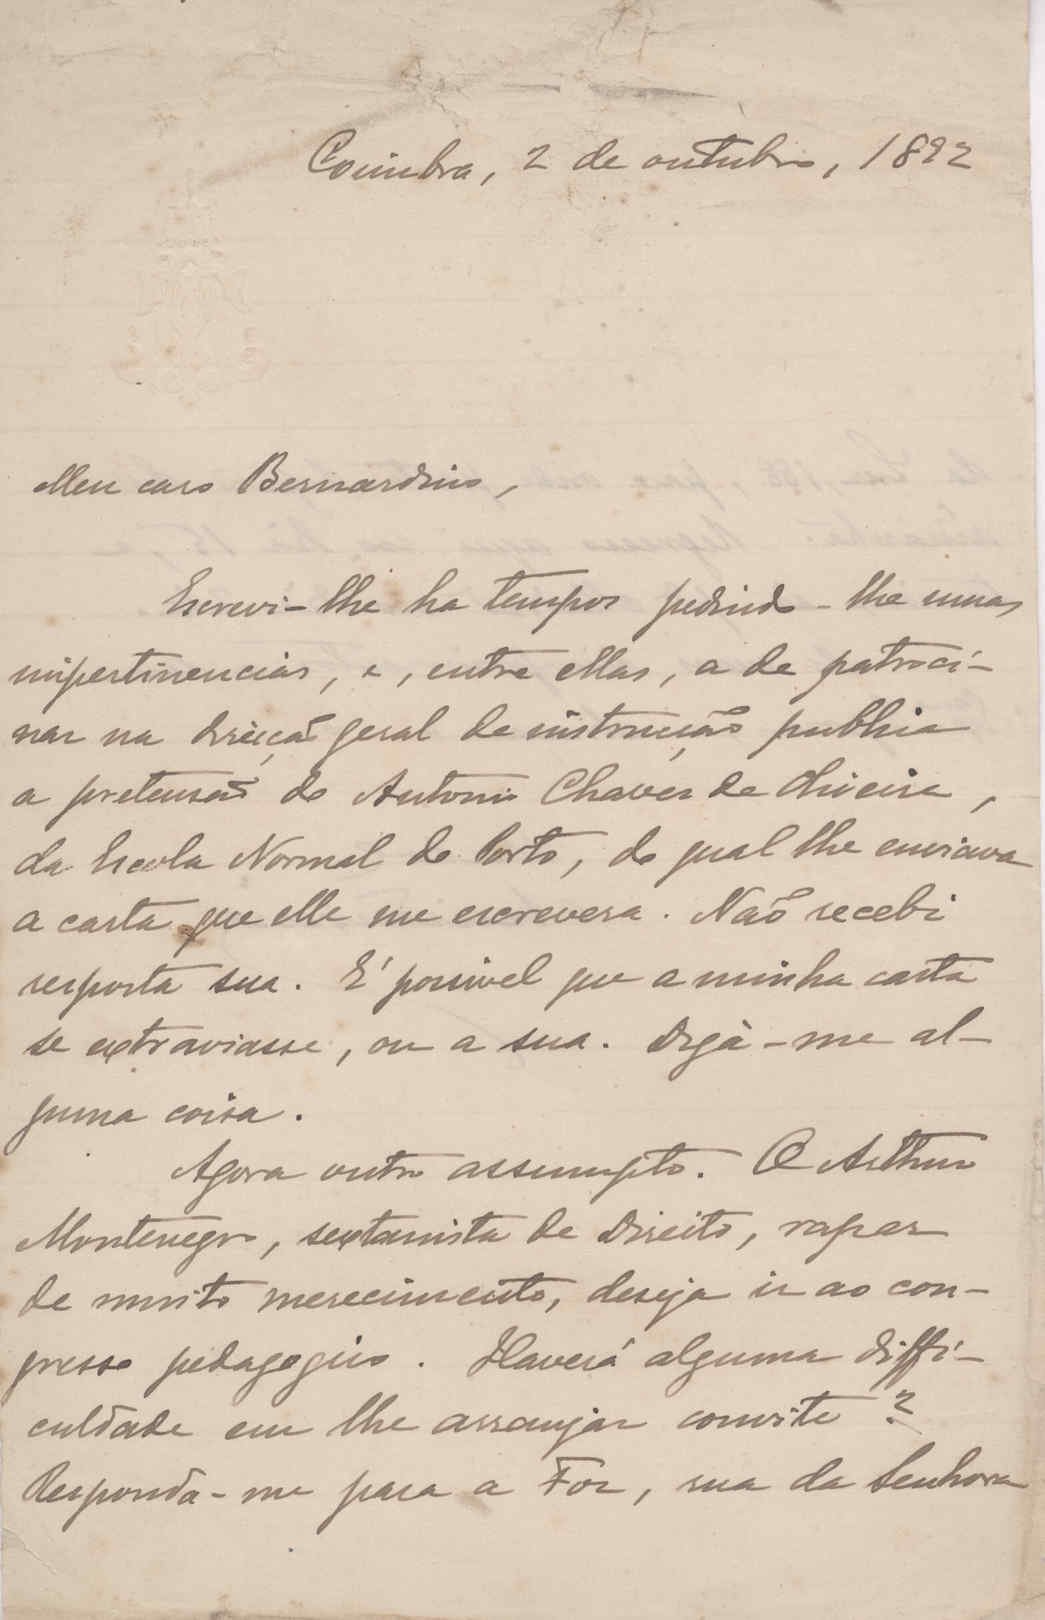 Coimbra, 2 de outubro, 1892
Meu caro Bernardino,
Escrevi-lhe ha tempos pedindo-lhe umas
impertinencias, e, entre ellas, a de patroci-
nar na direcção geral de instrucção publica
a pretensão do Antonio Chaves de Oliveira,
da Escola Normal do Porto, do qual lhe enviava
a carta que elle me escrevera. Não recebi
resposta sua. É possivel que a minha carta
se extraviasse, ou a sua. Diga-me al-
guma coisa.
Agora outro assumpto. O Arthur
Montenegro, sextanista de Direito, rapaz
de muito merecimento, deseja ir ao con-
gresso pedagogico. Haverá alguma diffi-
culdade em lhe arranjar convite?
Responda-me para a Foz, rua da Senhora